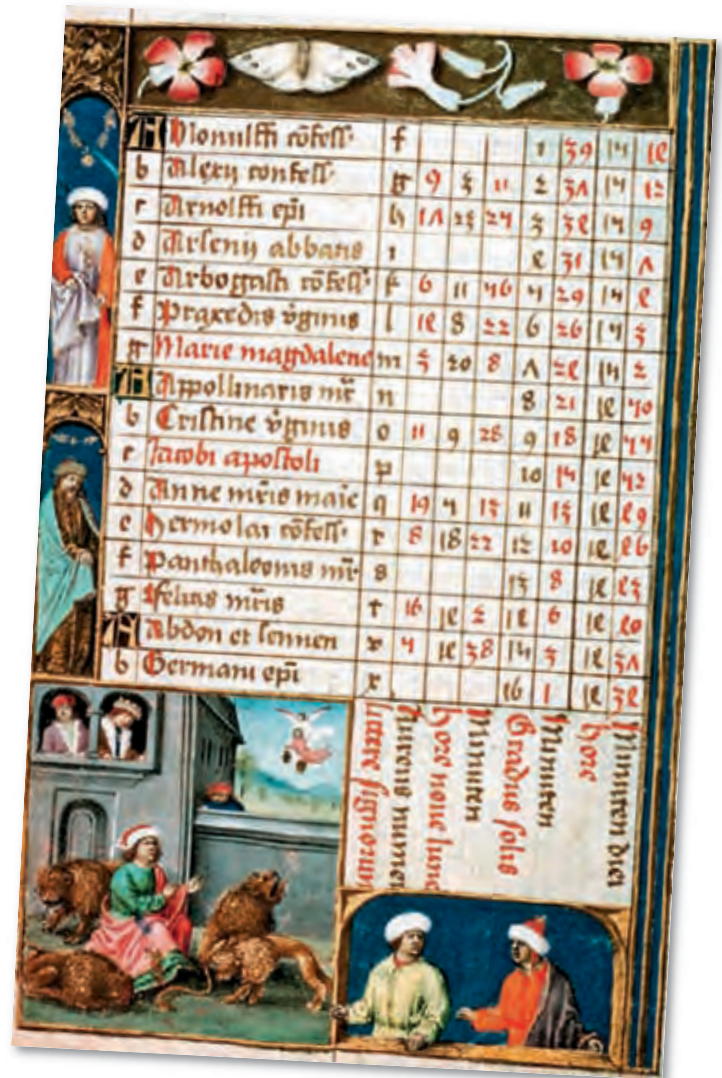 A Dionulffi cōfess. f 1 39 15 14
b Alexij confess. g 9 3 11 2 37 15 12
c Arnolffi ep̄i h 17 23 25 3 34 15 9
d Arsenij abbatis i 4 31 15 7
e Arbogasti cōfess. k 6 11 56 5 29 15 4
f Praxedis v̄ginis l 14 8 22 6 26 15 3
g Marie magdalene m 3 20 8 7 24 15 2
A Appollinaris mr̄ n 8 21 14 50
b Cristine v̄ginis o 11 9 28 9 18 14 55
c Iacobi apostoli p 10 15 14 52
d Anne mr̄is maīe q 19 5 13 11 13 14 49
e Hermolai cōfess. r 8 18 22 12 10 14 46
f Panthaleonis mr̄. s 13 8 14 43
g Felicis mr̄is t 16 14 2 14 6 14 40
A Abdon et sennen v 5 14 38 15 3 14 37
b Germani ep̄i x 16 1 14 34
littere signorum
Aureus numer
Hore none lune
Minuten
Gradus solis
Minuten
Hore
Minuten diei